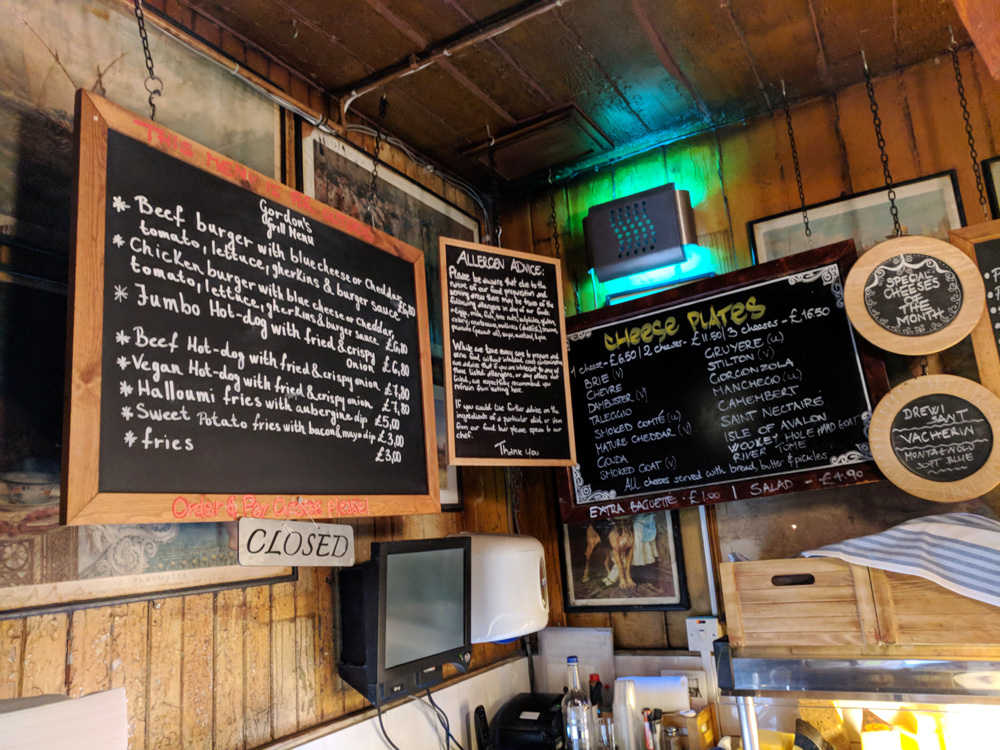 THIS MENU IS
Gordon's
Grill Menu
* Beef burger with blue cheese or Cheddar,
tomato, lettuce, gherkins & burger sauce £6,80
* Chicken burger with blue cheese or cheddar,
tomato, lettuce, gherkins & burger sauce £6,80
* Jumbo Hot-dog with fried & crispy
Onion £6,80
* Beef Hot-dog with fried & crispy onion £7,80
* Vegan Hot-dog with fried & crispy onion £7,80
* Halloumi fries with aubergine dip £5,00
* Sweet Potato fries with bacon & mayo dip £3,00
* fries £3,00
Order & Pay Outside please!
CLOSED
ALLERGEN ADVICE:
Please be aware that due to the
nature of our food preparation and
serving areas there may be traces of the
following allergens in any of our foods:
While we take every care to prepare and
If you would like further advice on the
ingredients of a particular dish or item
from our food bar please speak to our
chef.
Thank you
CHEESE PLATES
1 cheese - £6.50 / 2 cheeses - £11.50 / 3 cheeses - £16.50
BRIE (V)
CHEVRE
DAMBUSTER (V)
TALEGGIO
SMOKED COMTÉ (U)
MATURE CHEDDAR (V)
GOUDA
SMOKED GOAT (V)
GRUYERE (U)
STILTON (V)
GORGONZOLA
MANCHEGO (U)
CAMEMBERT
SAINT NECTAIRE
ISLE OF AVALON
WOOKEY HOLE
RIVER TOME
All cheeses served with bread, butter & pickles
EXTRA BAGUETTE - £1.00 | SALAD - £4.90
SPECIAL
CHEESES
OF THE
MONTH
DREWI
SANT
VACHERIN
MONTAGNOLO
SOFT BLUE
PLAYMATES